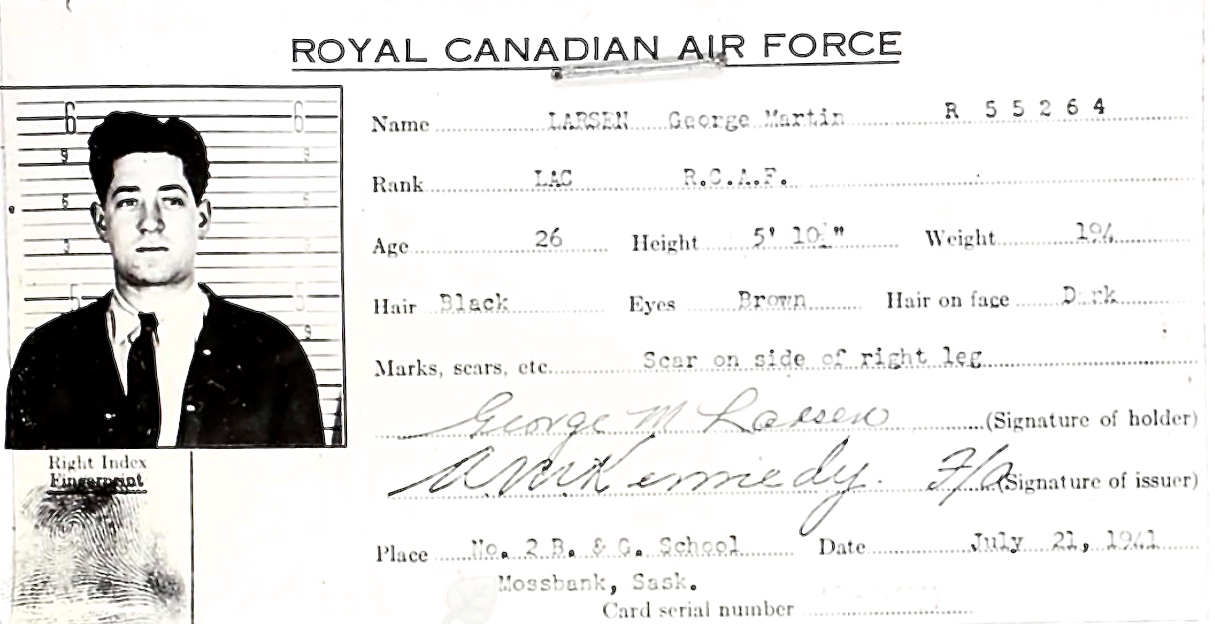 ROYAL CANADIAN AIR FORCE
Name LARSEN George Martin R 55264
Rank LAC R.C.A.F.
Age 26 Height 5' 10 " Weight 194
Hair Black Eyes Brown Hair on face D rk
Marks, scars, etc. Scar on side of right leg
George M Larsen (Signature of holder)
Kennedy. (Signature of issuer)
Right Index
Fingerprint
Place No. 2 B. & G. School Date July 21, 1941
Mossbank, Sask.
Card serial number
6 6
9 9
6 6
3 3
5 5
9